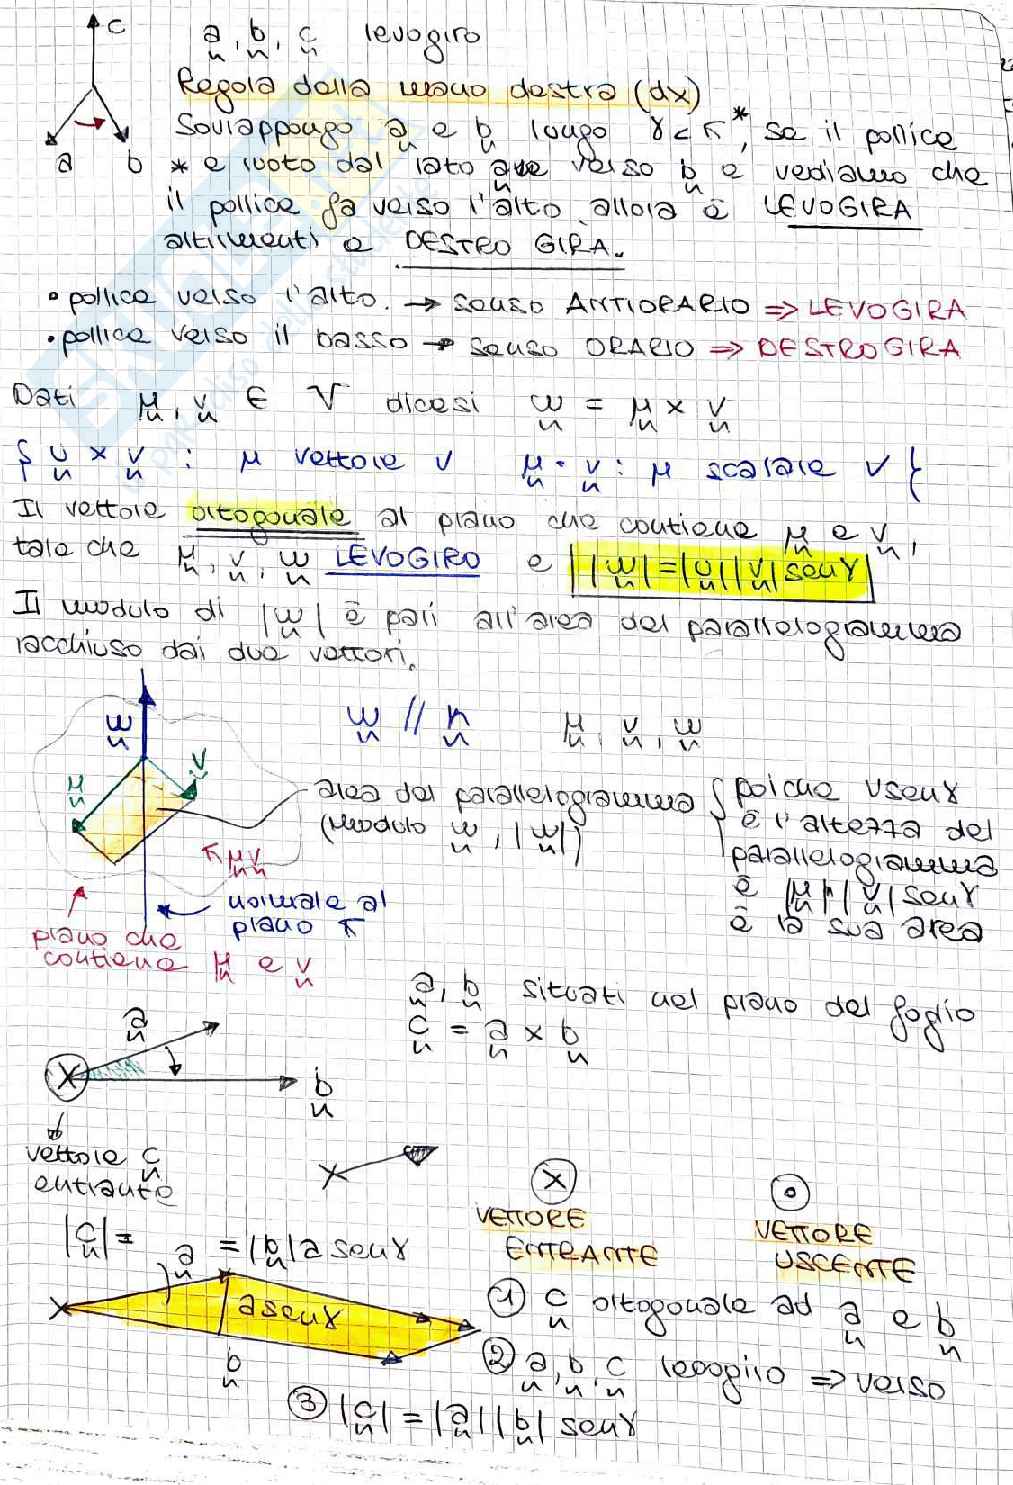 c
a, b, c levogiro
Regola della mano destra (dx)
Sovrappongo a e b lungo γ<π*, se il pollice
a b * e ruoto dal lato a verso b e vediamo che
il pollice fa verso l'alto allora è LEVOGIRA
altrimenti è DESTRO GIRA.
• pollice verso l'alto. → senso ANTIORARIO ⇒ LEVOGIRA
• pollice verso il basso → senso ORARIO ⇒ DESTROGIRA
Dati μ, v ∈ V dicesi w = μ × v
{ u × v : μ vettore v μ · v : μ scalare v }
Il vettore ortogonale al piano che contiene μ e v,
tale che μ, v, w LEVOGIRO e |w|=|u||v| senγ
Il modulo di |w| è pari all'area del parallelogramma
racchiuso dai due vettori.
w w // n μ, v, w
μ v
area del parallelogramma { poiché vsenγ
(modulo w, |w|) è l'altezza del
parallelogramma
π μv è |μ||v| senγ
normale al è la sua area
piano π
piano che
contiene μ e v
a, b situati nel piano del foglio
a c = a × b
X b
vettore c
entrante
X X
VETTORE VETTORE
ENTRANTE USCENTE
|c| = a = |b| a senγ
X asenγ ① c ortogonale ad a e b
b ② a, b, c levogiro ⇒ verso
③ |c| = |a||b| senγ